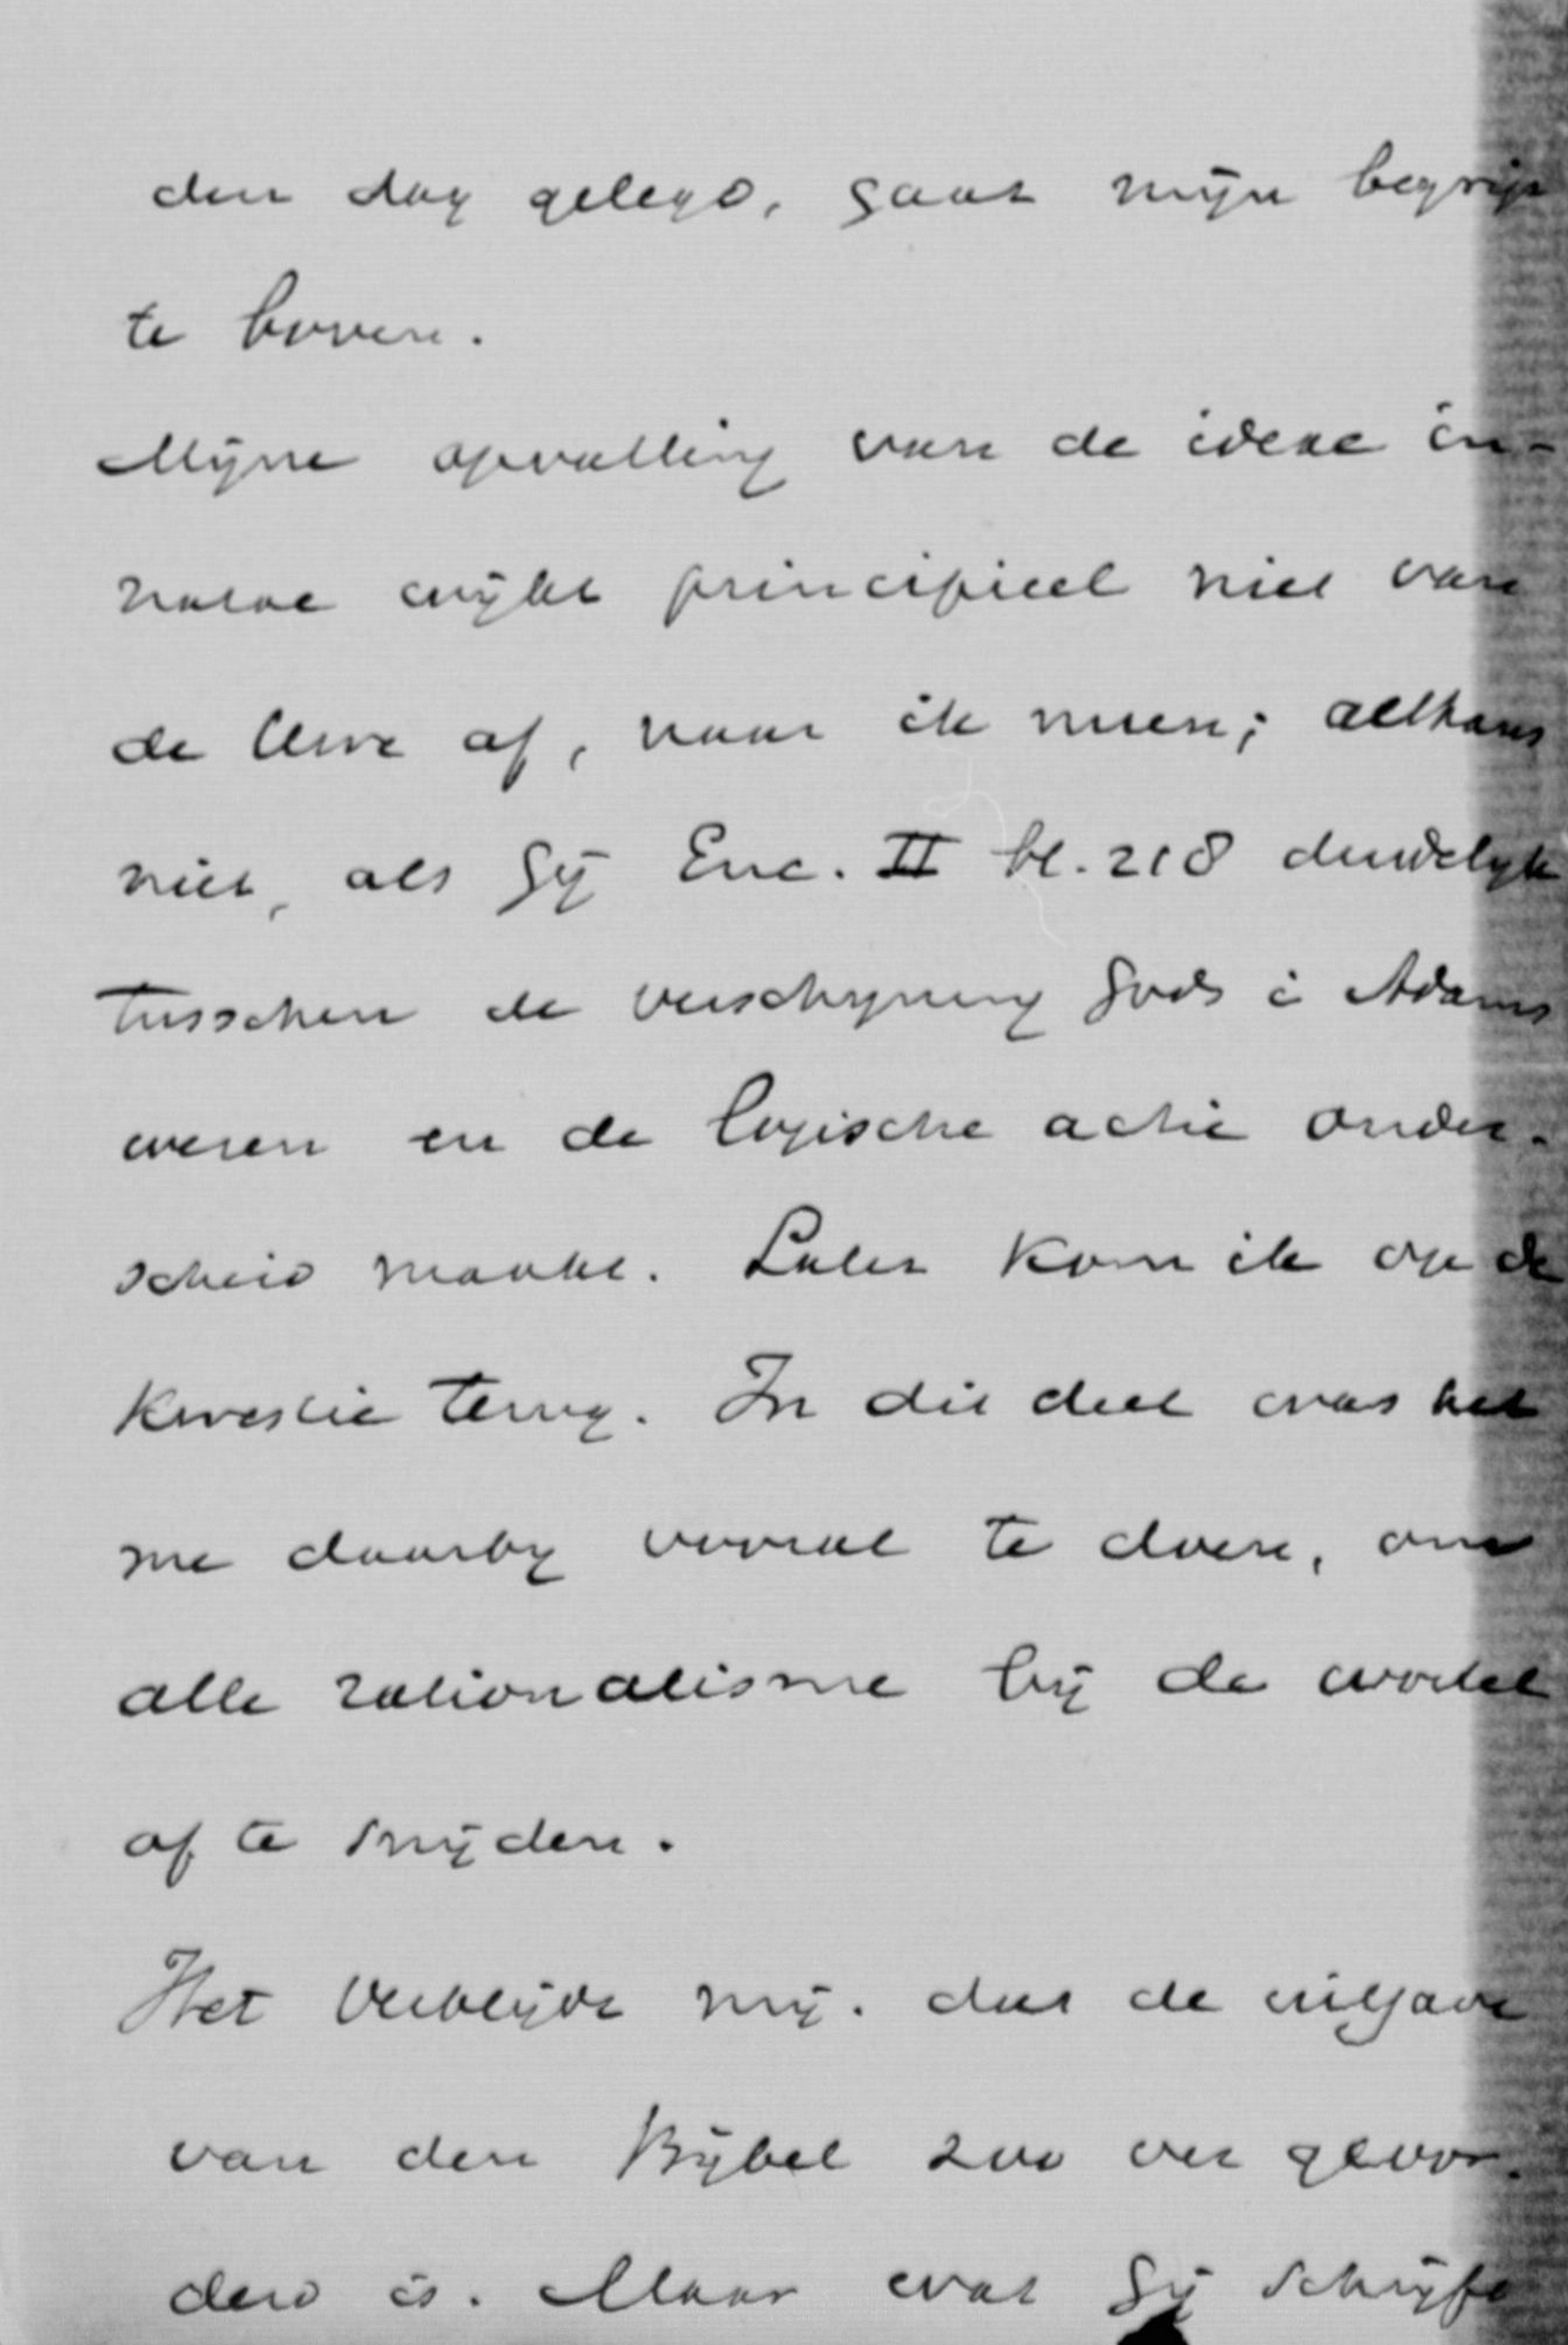 den dag gelegd, gaat mijn begrip
te boven.
Mijne opvatting van de ideae in-
natae wijkt principieel niet van
de Uwe af, naar ik meen; althans
niet, als Gij Enc. II bl. 218 duidelijk
tusschen de verschijning Gods i Adams
wezen en de logische actie onder-
scheid maakt. Later kom ik op de
kwestie terug. In dit deel was het
me daarbij vooral te doen, om
alle rationalisme bij de wortel
af te snijden.
Het verblijdt mij. dat de uitgave
van den Bijbel zoo ver gevor-
derd is. Maar wat Gij schrijft